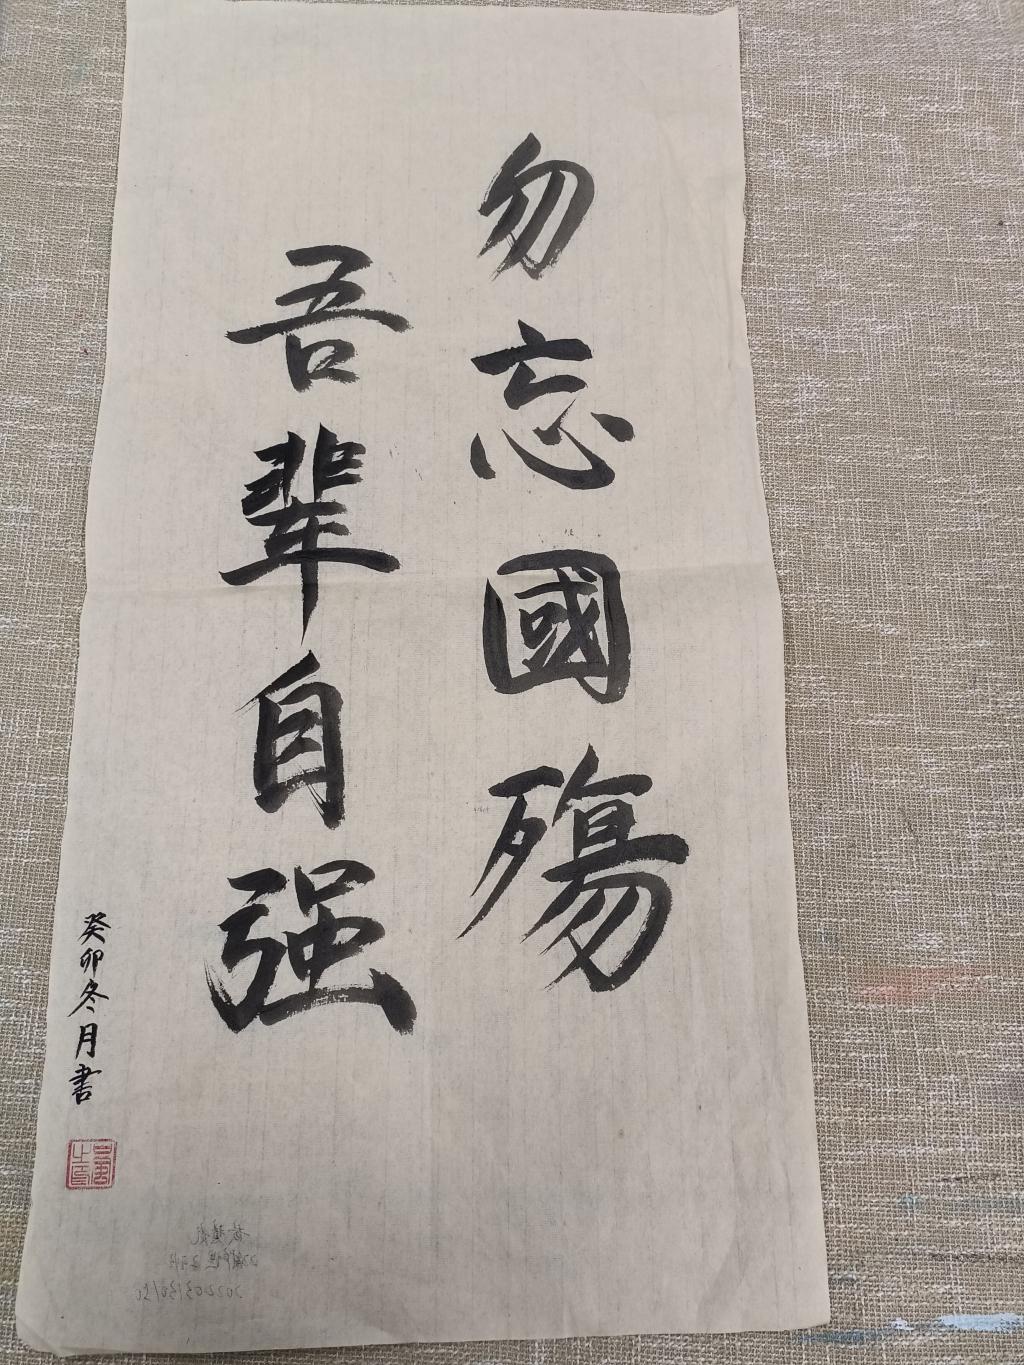 勿忘國殤
吾辈自强
癸卯冬月書